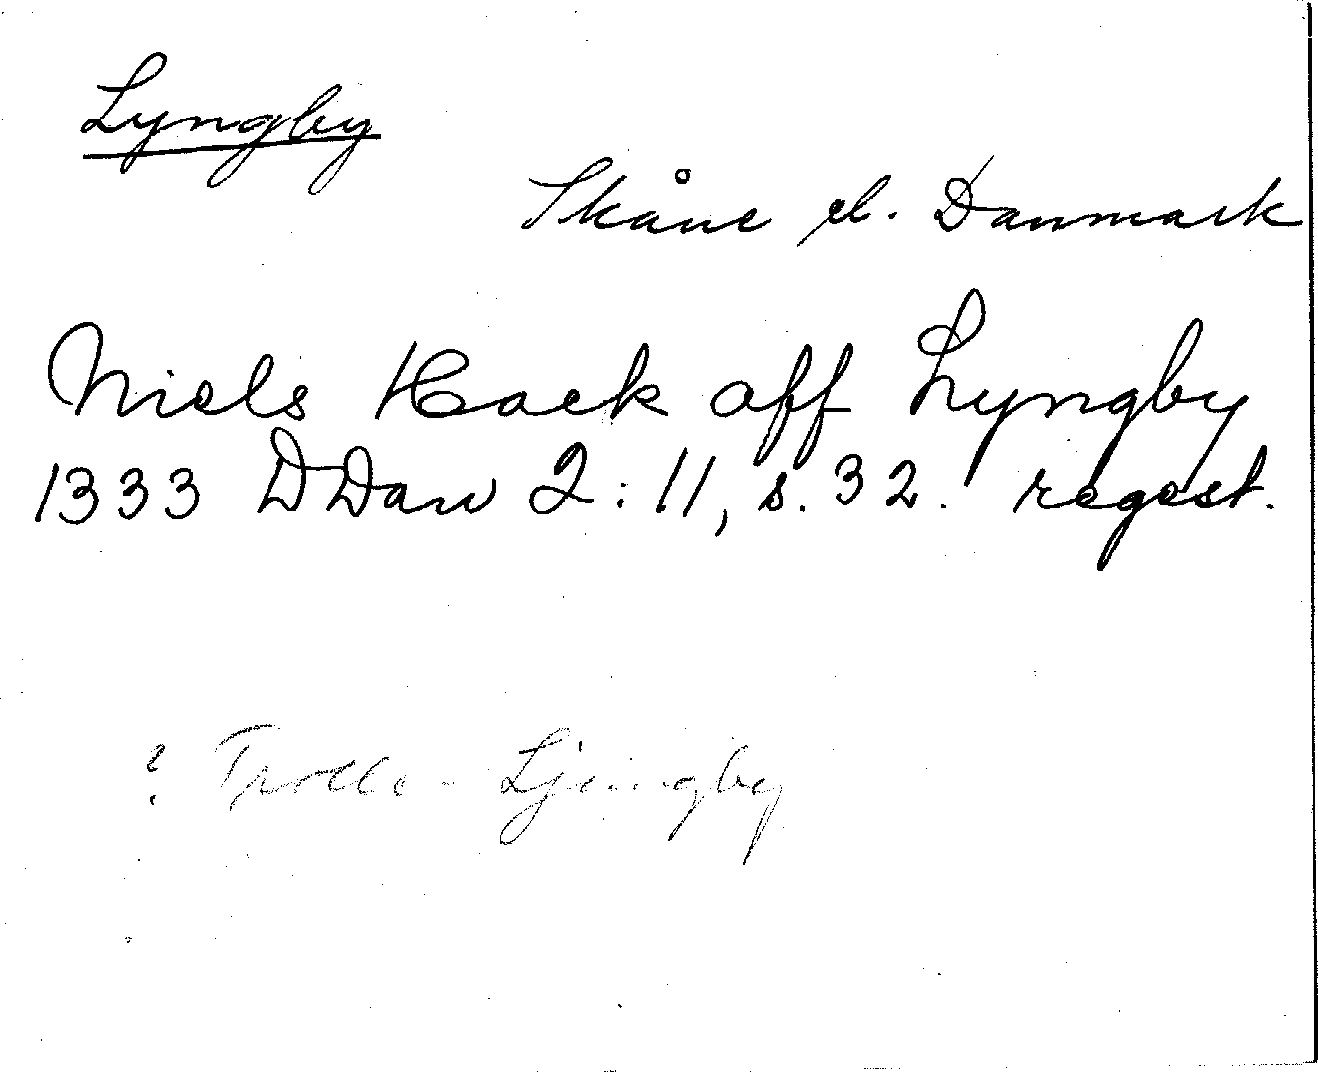 Lyngby
Skåne el. Danmark
Niels Hack aff Lyngby
1333 DDan 2:11, s. 32. regest.
? Trolle-Ljungby